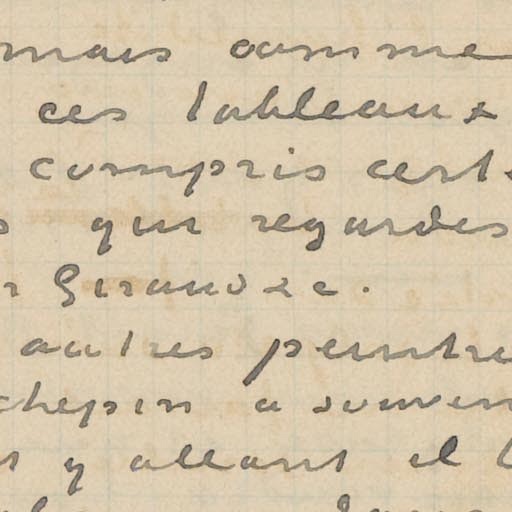 mais comme
ces tableaux
compris cert
s qui regardes
r Giraudec.
autres peintre
chepin a souven
t y allant il l